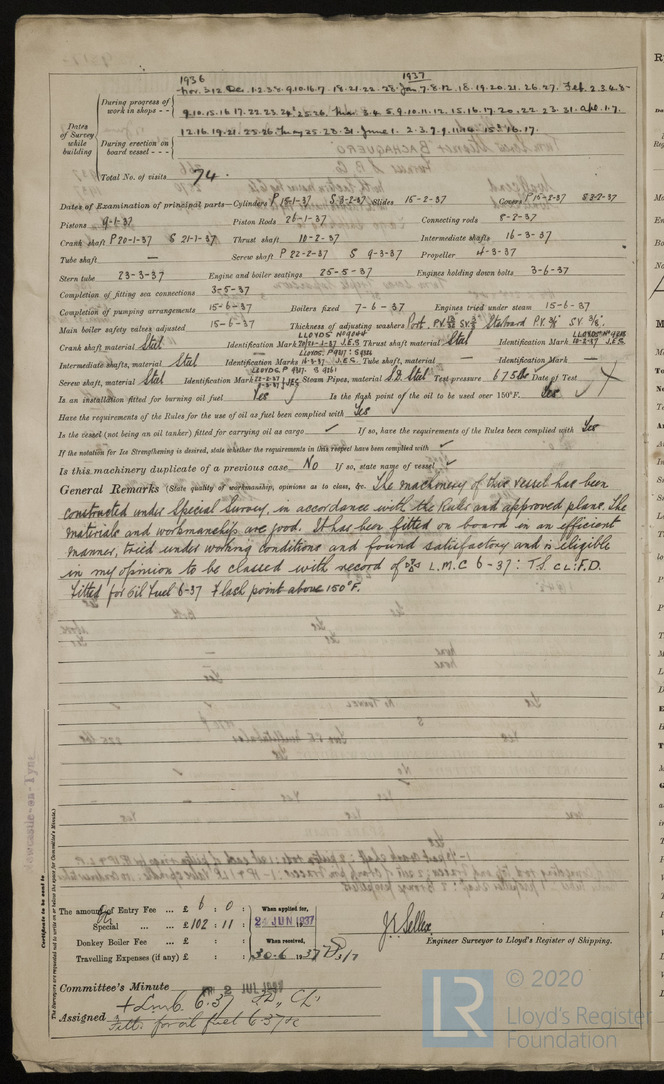 1936 1937
During progress of work in shops - - Nov. 3.12 Dec. 1.2.3.8.9.10.16.17. 18.21.22.28. Jan 7.8.12.18.19.20.21.26.27. Feb. 2.3.4.8
9.10.15.16.17.22.23.24.25.26. Mar 3.4.5.9.10.11.12.15.16.17.20.22.23.31. Apl. 1.7.
Dates of Survey while building
During erection on board vessel - - - 12.16.19.21.22.26. May 25.28.31. June 1.2.3.7.9.11.14.15.16.17.
Total No. of visits 74.
Dates of Examination of principal parts—Cylinders P 15-1-37 S 3-2-37 Slides 15-2-37 Covers P 15-2-37 S 3-2-37
Pistons 9-1-37 Piston Rods 26-1-37 Connecting rods 8-2-37
Crank shaft P 20-1-37 S 21-1-37 Thrust shaft 10-2-37 Intermediate shafts 16-3-37
Tube shaft — Screw shaft P 22-2-37 S 9-3-37 Propeller 4-3-37
Stern tube 23-3-37 Engine and boiler seatings 25-5-37 Engines holding down bolts 3-6-37
Completion of fitting sea connections 3-5-37
Completion of pumping arrangements 15-6-37 Boilers fixed 7-6-37 Engines tried under steam 15-6-37
Main boiler safety valves adjusted 15-6-37 Thickness of adjusting washers Port. P.V. S.V. Starboard P.V. 3/8" S.V. 3/8".
Crank shaft material Steel Identification Mark LLOYDS J.E.S Thrust shaft material Steel Identification Mark LLOYDS J.E.S.
Intermediate shafts, material Steel Identification Marks LLOYDS 16-3-37 J.E.S. Tube shaft, material — Identification Mark —
Screw shaft, material Steel Identification Mark LLOYDS J.E.S Steam Pipes, material S.D. Steel Test pressure 675 lbs Date of Test
Is an installation fitted for burning oil fuel Yes Is the flash point of the oil to be used over 150°F. Yes
Have the requirements of the Rules for the use of oil as fuel been complied with Yes
Is the vessel (not being an oil tanker) fitted for carrying oil as cargo ✓ If so, have the requirements of the Rules been complied with Yes
If the notation for Ice Strengthening is desired, state whether the requirements in this respect have been complied with ✓
Is this machinery duplicate of a previous case No If so, state name of vessel ✓
General Remarks (State quality of workmanship, opinions as to class, &c. The machinery of this vessel has been
constructed under Special Survey, in accordance with the Rules and approved plans. The
materials and workmanship are good. It has been fitted on board in an efficient
manner, tried under working conditions and found satisfactory and is eligible
in my opinion to be classed with record of L.M.C 6-37: T.S. CL: F.D.
Fitted for oil Fuel 6-37 Flash point above 150°F.
Newcastle-on-Tyne
Certificate to be sent to
(The Surveyors are requested not to write on or below the space for Committee's Minute.)
The amount of Entry Fee ... £ 6 : 0 : When applied for,
Special ... ... £102 : 11 : 2 JUN 1937
Donkey Boiler Fee ... £ : : When received,
Travelling Expenses (if any) £ : : 30-6-1937
J.E. Sellex
Engineer Surveyor to Lloyd's Register of Shipping.
Committee's Minute FRI 2 JUL 1937
Assigned + Lmb 6.37 F.D., CL.
Fitted for oil fuel 6.37
© 2020
LR
Lloyd's Register
Foundation